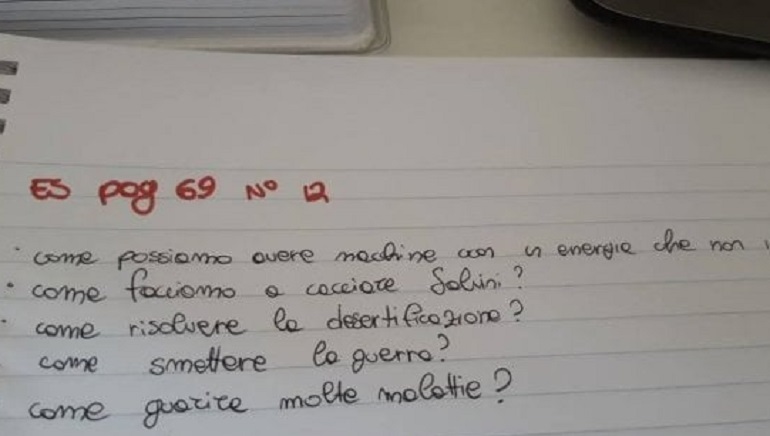 ES pag 69 N° 12
come possiamo avere machine con un energia che non
come facciamo a cacciare Salvini?
come risolvere la desertificazione?
come smettere la guerra?
come guarire molte malattie?